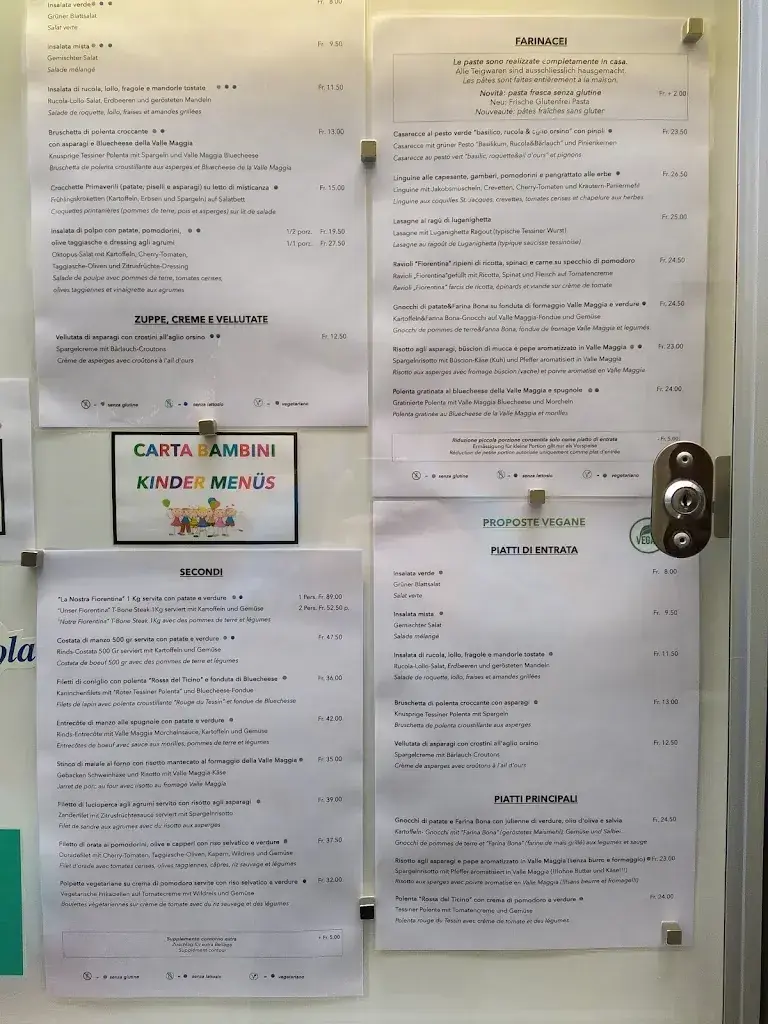 Insalata verde
Fr. 8.00
Grüner Blattsalat
Salat verte
Insalata mista
Fr. 9.50
Gemischter Salat
Salade mélangé
Insalata di rucola, lollo, fragole e mandorle tostate
Fr. 11.50
Rucola-Lollo-Salat, Erdbeeren und gerösteten Mandeln
Salade de roquette, lollo, fraises et amandes grillées
Bruschetta di polenta croccante
Fr. 13.00
con asparagi e Bluecheese della Valle Maggia
Knusprige Tessiner Polenta mit Spargeln und Valle Maggia Bluecheese
Bruschetta de polenta croustillante aux asperges et Bluecheese de la Valle Maggia
Crocchette Primaverili (patate, piselli e asparagi) su letto di misticanza
Fr. 15.00
Frühlingskroketten (Kartoffeln, Erbsen und Spargeln) auf Salatbett
Croquettes printanières (pommes de terre, pois et asperges) sur lit de salade
Insalata di polpo con patate, pomodorini,
1/2 porz. Fr. 19.50
olive taggiasche e dressing agli agrumi
1/1 porz. Fr. 27.50
Oktopus-Salat mit Kartoffeln, Cherry-Tomaten,
Taggiasche-Oliven und Zitrusfrüchte-Dressing
Salade de poulpe avec pommes de terre, tomates cerises,
olives taggiennes et vinaigrette aux agrumes
ZUPPE, CREME E VELLUTATE
Vellutata di asparagi con crostini all'aglio orsino
Fr. 12.50
Spargelcreme mit Bärlauch-Croutons
Crème de asperges avec croûtons à l'ail d'ours
= senza glutine = senza lattosio = vegetariano
CARTA BAMBINI
KINDER MENÜS
SECONDI
"La Nostra Fiorentina" 1 Kg servita con patate e verdure
1 Pers. Fr. 89.00
"Unser Fiorentina" T-Bone Steak 1Kg serviert mit Kartoffeln und Gemüse
2 Pers. Fr. 52.50 p.
"Notre Fiorentina" T-Bone Steak 1Kg avec des pommes de terre et légumes
Costata di manzo 500 gr servita con patate e verdure
Fr. 47.50
Rinds-Costata 500 Gr serviert mit Kartoffeln und Gemüse
Costata de boeuf 500 gr avec des pommes de terre et légumes
Filetti di coniglio con polenta "Rossa del Ticino" e fonduta di Bluecheese
Fr. 36.00
Kaninchenfilets mit "Roter Tessiner Polenta" und Bluecheese-Fondue
Filets de lapin avec polenta croustillante "Rouge du Tessin" et fondue de Bluecheese
Entrecôte di manzo alle spugnole con patate e verdure
Fr. 42.00
Rinds-Entrecôte mit Valle Maggia Morchelnsauce, Kartoffeln und Gemüse
Entrecôtes de boeuf avec sauce aux morilles, pommes de terre et légumes
Stinco di maiale al forno con risotto mantecato al formaggio della Valle Maggia
Fr. 35.00
Gebacken Schweinhaxe und Risotto mit Valle Maggia-Käse
Jarret de porc au four avec risotto au fromage Valle Maggia
Filetto di lucioperca agli agrumi servito con risotto agli asparagi
Fr. 39.00
Zanderfilet mit Zitrusfrüchtesauce serviert mit Spargelnrisotto
Filet de sandre aux agrumes avec du risotto aux asperges
Filetto di orata ai pomodorini, olive e capperi con riso selvatico e verdure
Fr. 37.50
Doradefilet mit Cherry-Tomaten, Taggiasche-Oliven, Kapern, Wildreis und Gemüse
Filet d'orade avec tomates cerises, olives taggiennes, câpres, riz sauvage et légumes
Polpette vegetariane su crema di pomodoro servite con riso selvatico e verdure
Fr. 32.00
Vegetarische Frikadellen auf Tomatencreme mit Wildreis und Gemüse
Boulettes végétariennes sur crème de tomate avec du riz sauvage et des légumes
Supplemento contorno extra
+ Fr. 5.00
Zuschlag für extra Beilage
Supplement contour
= senza glutine = senza lattosio = vegetariano
FARINACEI
Le paste sono realizzate completamente in casa.
Alle Teigwaren sind ausschliesslich hausgemacht.
Les pâtes sont faites entièrement à la maison.
Novità: pasta fresca senza glutine
Fr. + 2.00
Neu: Frische Glutenfrei Pasta
Nouveauté: pâtes fraîches sans gluter
Casarecce al pesto verde "basilico, rucola & aglio orsino" con pinoli
Fr. 23.50
Casarecce mit grüner Pesto "Basilikum, Rucola&Bärlauch" und Pinienkernen
Casarecce au pesto vert "basilic, roquette&ail d'ours" et pignons
Linguine alle capesante, gamberi, pomodorini e pangrattato alle erbe
Fr. 26.50
Linguine mit Jakobsmuscheln, Crevetten, Cherry-Tomaten und Kräutern-Paniermehl
Linguine aux coquilles St. Jacques, crevettes, tomates cerises et chapelure aux herbes
Lasagne al ragù di luganighetta
Fr. 25.00
Lasagne mit Luganighetta Ragout (typische Tessiner Wurst)
Lasagne au ragoût de Luganighetta (typique saucisse tessinoise)
Ravioli "Fiorentina" ripieni di ricotta, spinaci e carne su specchio di pomodoro
Fr. 24.50
Ravioli „Fiorentina"gefüllt mit Ricotta, Spinat und Fleisch auf Tomatencreme
Ravioli „Fiorentina" farcis de ricotta, épinards et viande sur crème de tomate
Gnocchi di patate&Farina Bona su fonduta di formaggio Valle Maggia e verdure
Fr. 24.50
Kartoffeln&Farina Bona-Gnocchi auf Valle Maggia-Fondue und Gemüse
Gnocchi de pommes de terre&Farina Bona, fondue de fromage Valle Maggia et légumes
Risotto agli asparagi, büscion di mucca e pepe aromatizzato in Valle Maggia
Fr. 23.00
Spargelnrisotto mit Büscion-Käse (Kuh) und Pfeffer aromatisiert in Valle Maggia
Risotto aux asperges avec fromage büscion (vache) et poivre aromatisé en Valle Maggia
Polenta gratinata al bluecheese della Valle Maggia e spugnole
Fr. 24.00
Gratinierte Polenta mit Valle Maggia Bluecheese und Morcheln
Polenta gratinée au Bluecheese de la Valle Maggia et morilles
Riduzione piccola porzione consentita solo come piatto di entrata
- Fr. 5.00
Ermässigung für kleine Portion gilt nur als Vorspeise
Réduction de petite portion autorisée uniquement comme plat d'entrée
= senza glutine = senza lattosio = vegetariano
PROPOSTE VEGANE
PIATTI DI ENTRATA
Insalata verde
Fr. 8.00
Grüner Blattsalat
Salat verte
Insalata mista
Fr. 9.50
Gemischter Salat
Salade mélangé
Insalata di rucola, lollo, fragole e mandorle tostate
Fr. 11.50
Rucola-Lollo-Salat, Erdbeeren und gerösteten Mandeln
Salade de roquette, lollo, fraises et amandes grillées
Bruschetta di polenta croccante con asparagi
Fr. 13.00
Knusprige Tessiner Polenta mit Spargeln
Bruschetta de polenta croustillante aux asperges
Vellutata di asparagi con crostini all'aglio orsino
Fr. 12.50
Spargelcreme mit Bärlauch Croutons
Crème de asperges avec croûtons à l'ail d'ours
PIATTI PRINCIPALI
Gnocchi di patate e Farina Bona con julienne di verdure, olio d'oliva e salvia
Fr. 24.50
Kartoffeln- Gnocchi mit "Farina Bona" (geröstetes Maismehl), Gemüse und Salbei
Gnocchi de pommes de terre et "Farina Bona" (farine de maïs grillé) aux légumes et sauge
Risotto agli asparagi e pepe aromatizzato in Valle Maggia (senza burro e formaggio)
Fr. 23.00
Spargelnrisotto mit Pfeffer aromatisiert in Valle Maggia (!!!ohne Butter und Käse!!!)
Risotto aux asperges avec poivre aromatisé en Valle Maggia (!!!sans beurre et fromage!!!)
Polenta "Rossa del Ticino" con crema di pomodoro e verdure
Fr. 24.00
Tessiner Polenta mit Tomatencreme und Gemüse
Polenta rouge du Tessin avec crème de tomate et des légumes